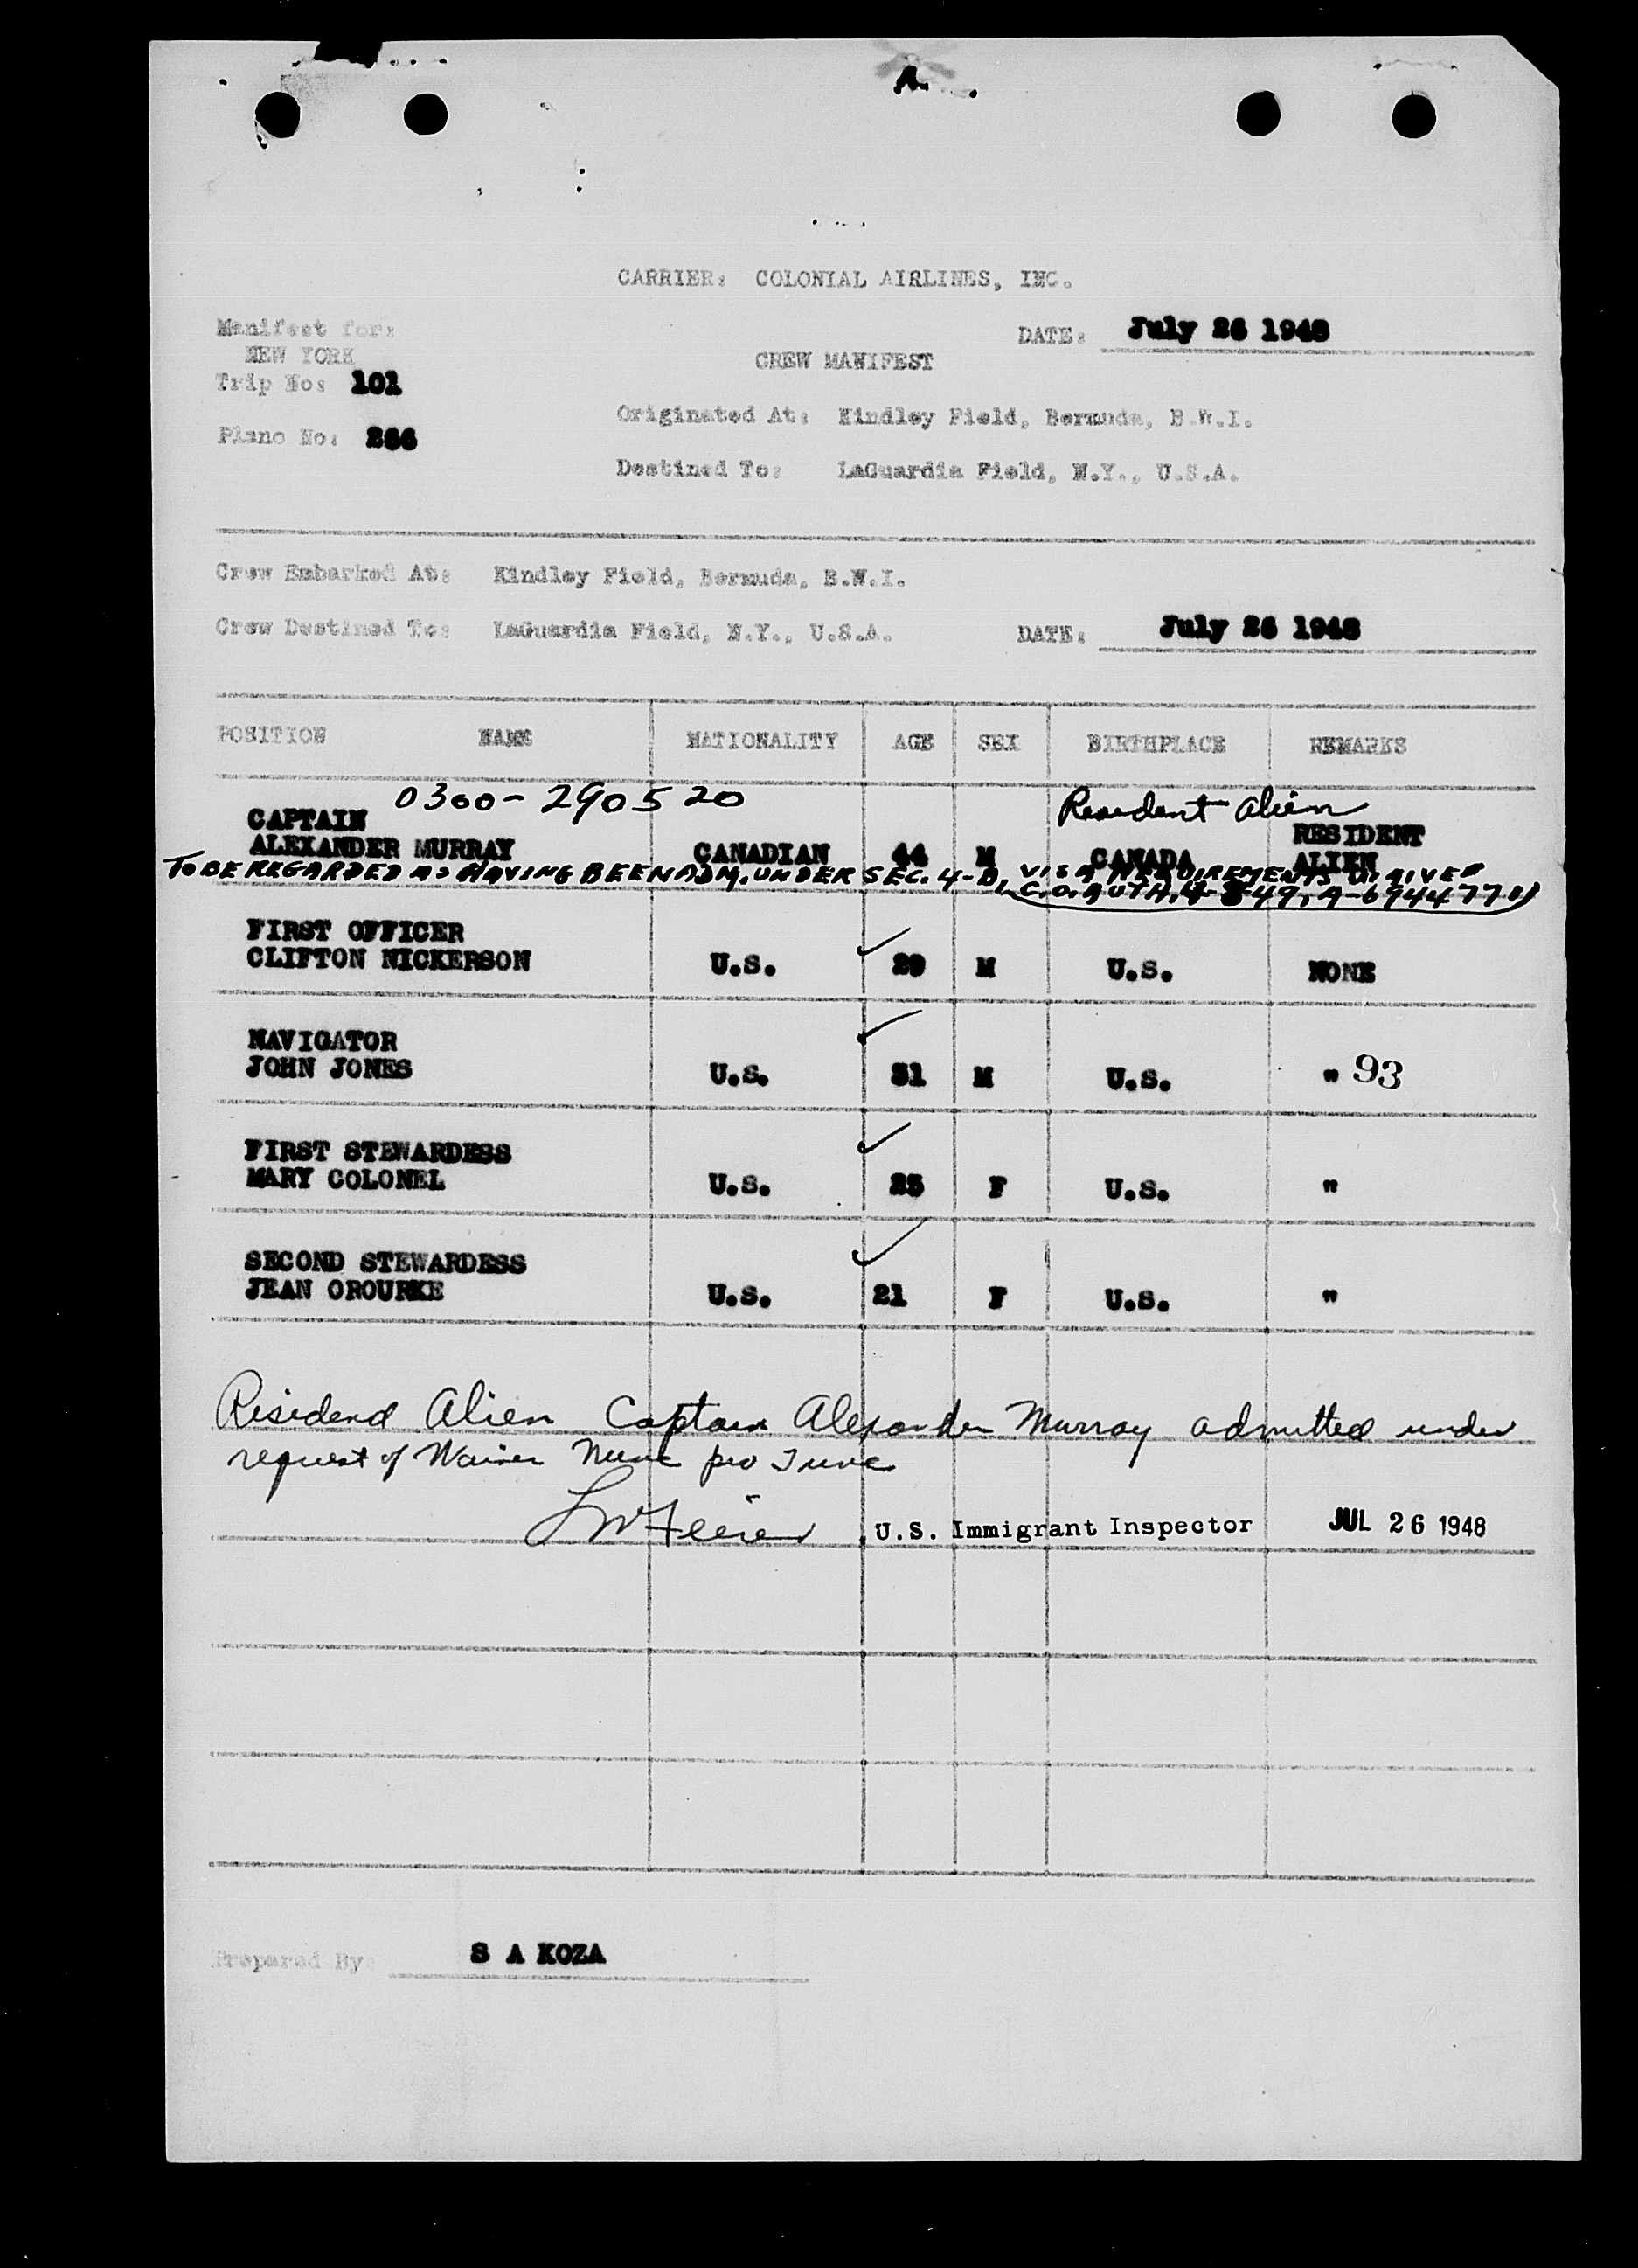 CARRIER: COLONIAL AIRLINES, INC.
Manifest for:
NEW YORK
DATE: July 26 1948
CREW MANIFEST
Trip No: 101
Originated At: Kindley Field, Bermuda, B.W.I.
Plane No: 266
Destined To: LaGuardia Field, N.Y., U.S.A.
Crew Embarked At: Kindley Field, Bermuda, B.W.I.
Crew Destined To: LaGuardia Field, N.Y., U.S.A. DATE: July 26 1948
POSITION NAME NATIONALITY AGE SEX BIRTHPLACE REMARKS
0300-290520 Resident alien
CAPTAIN RESIDENT
ALEXANDER MURRAY CANADIAN 44 M CANADA ALIEN
TO BE REGARDED AS HAVING BEEN ADM. UNDER SEC. 4-B, VISA REQUIREMENTS WAIVED
(C.O. AUTH. 4-8-49, A-6944771)
FIRST OFFICER
CLIFTON NICKERSON U.S. 29 M U.S. NONE
NAVIGATOR
JOHN JONES U.S. 31 M U.S. " 93
FIRST STEWARDESS
MARY COLONEL U.S. 25 F U.S. "
SECOND STEWARDESS
JEAN OROURKE U.S. 21 F U.S. "
Residend Alien Captain Alexander Murray admitted under
request of Waiver Nunc pro Tunc
U.S. Immigrant Inspector JUL 26 1948
Prepared By S A KOZA